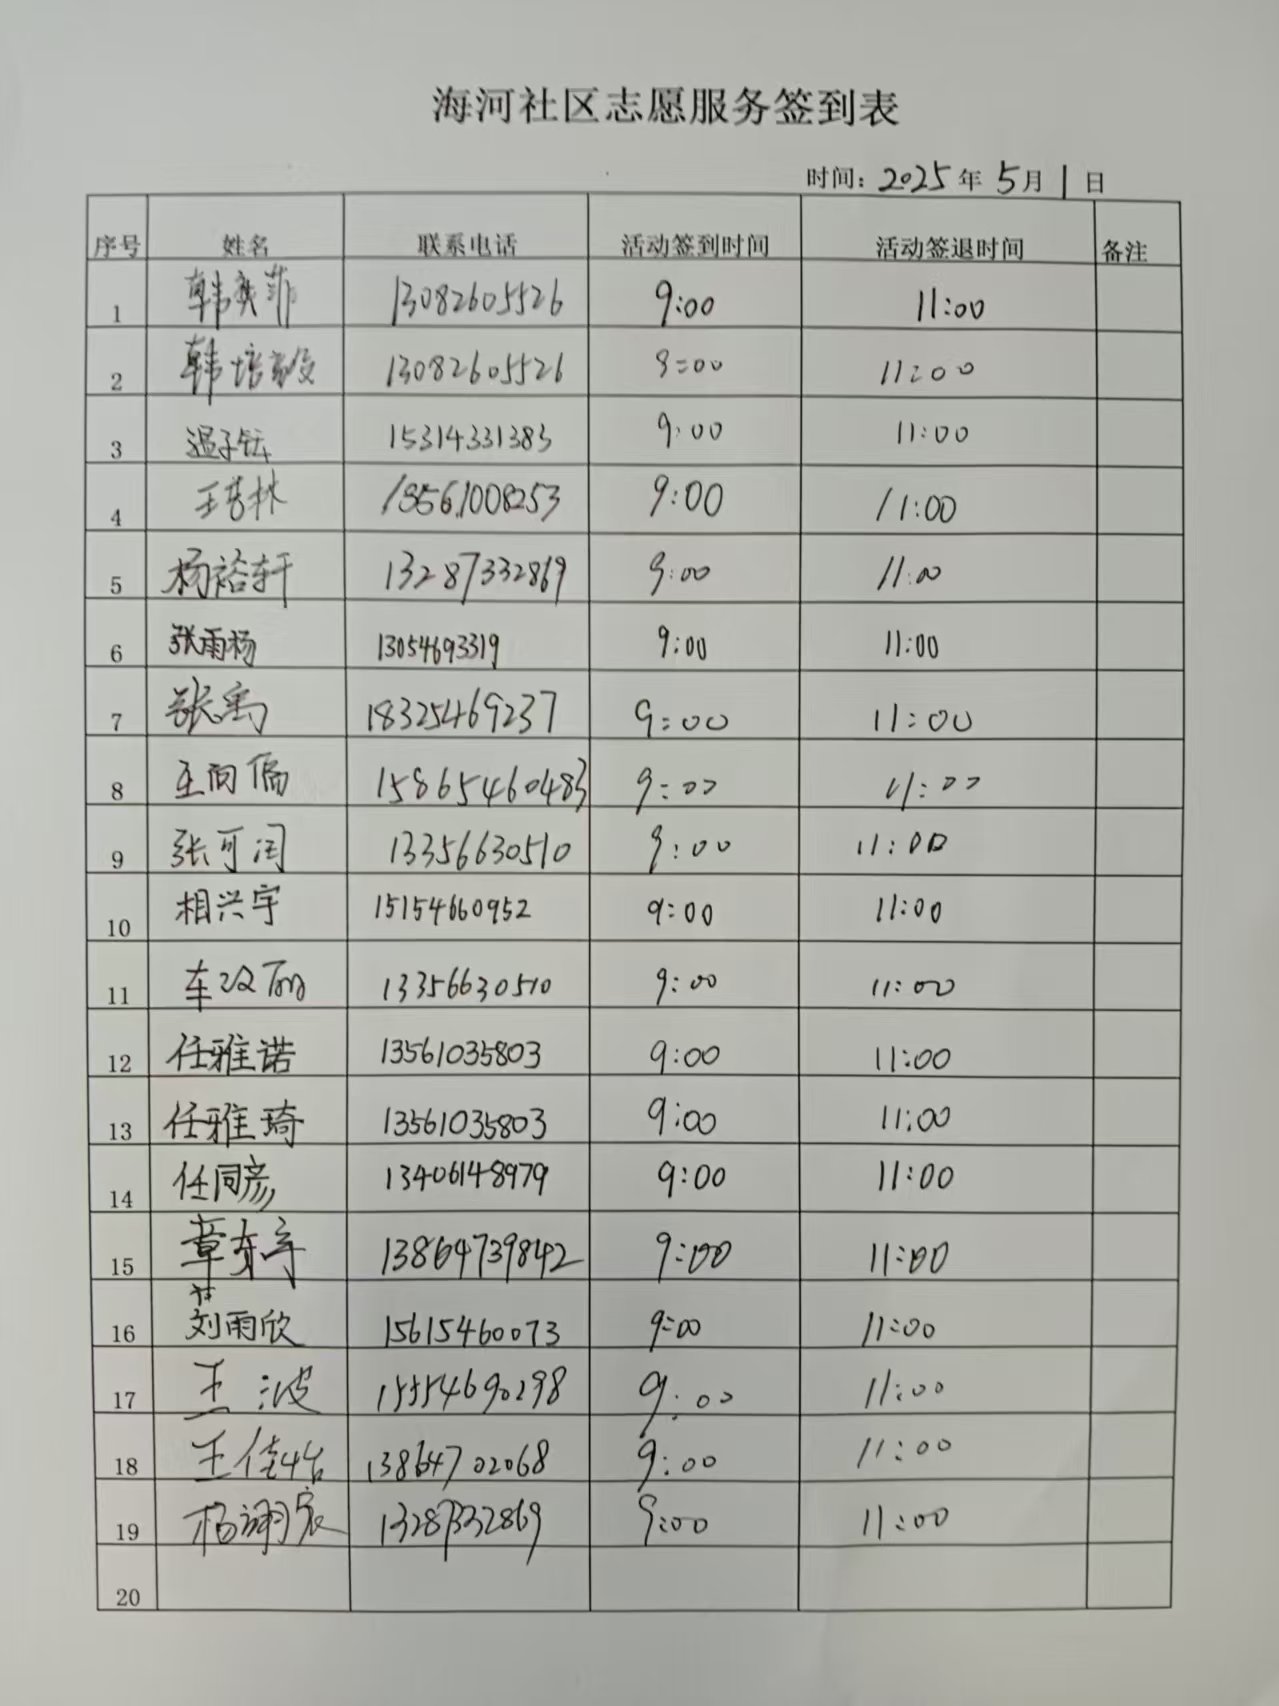 海河社区志愿服务签到表
时间：2025年5月1日
序号 姓名 联系电话 活动签到时间 活动签退时间 备注
1 韩奕菲 13082605526 9:00 11:00
2 韩培毅 13082605526 9:00 11:00
3 温子钰 15314331383 9:00 11:00
4 王芳林 18561008253 9:00 11:00
5 杨裕轩 13287332869 9:00 11:00
6 张雨杨 13054693319 9:00 11:00
7 张寓 18325469237 9:00 11:00
8 王向儒 15865460483 9:00 11:00
9 张可闰 13356630510 9:00 11:00
10 相兴宇 15154660952 9:00 11:00
11 车 13356630510 9:00 11:00
12 任雅诺 13561035803 9:00 11:00
13 任雅琦 13561035803 9:00 11:00
14 任同彦 13406148979 9:00 11:00
15 章 13864739842 9:00 11:00
16 刘雨欣 15615460073 9:00 11:00
17 王波 15554690298 9:00 11:00
18 王佳怡 13864702068 9:00 11:00
19 杨翊宸 13287332869 9:00 11:00
20